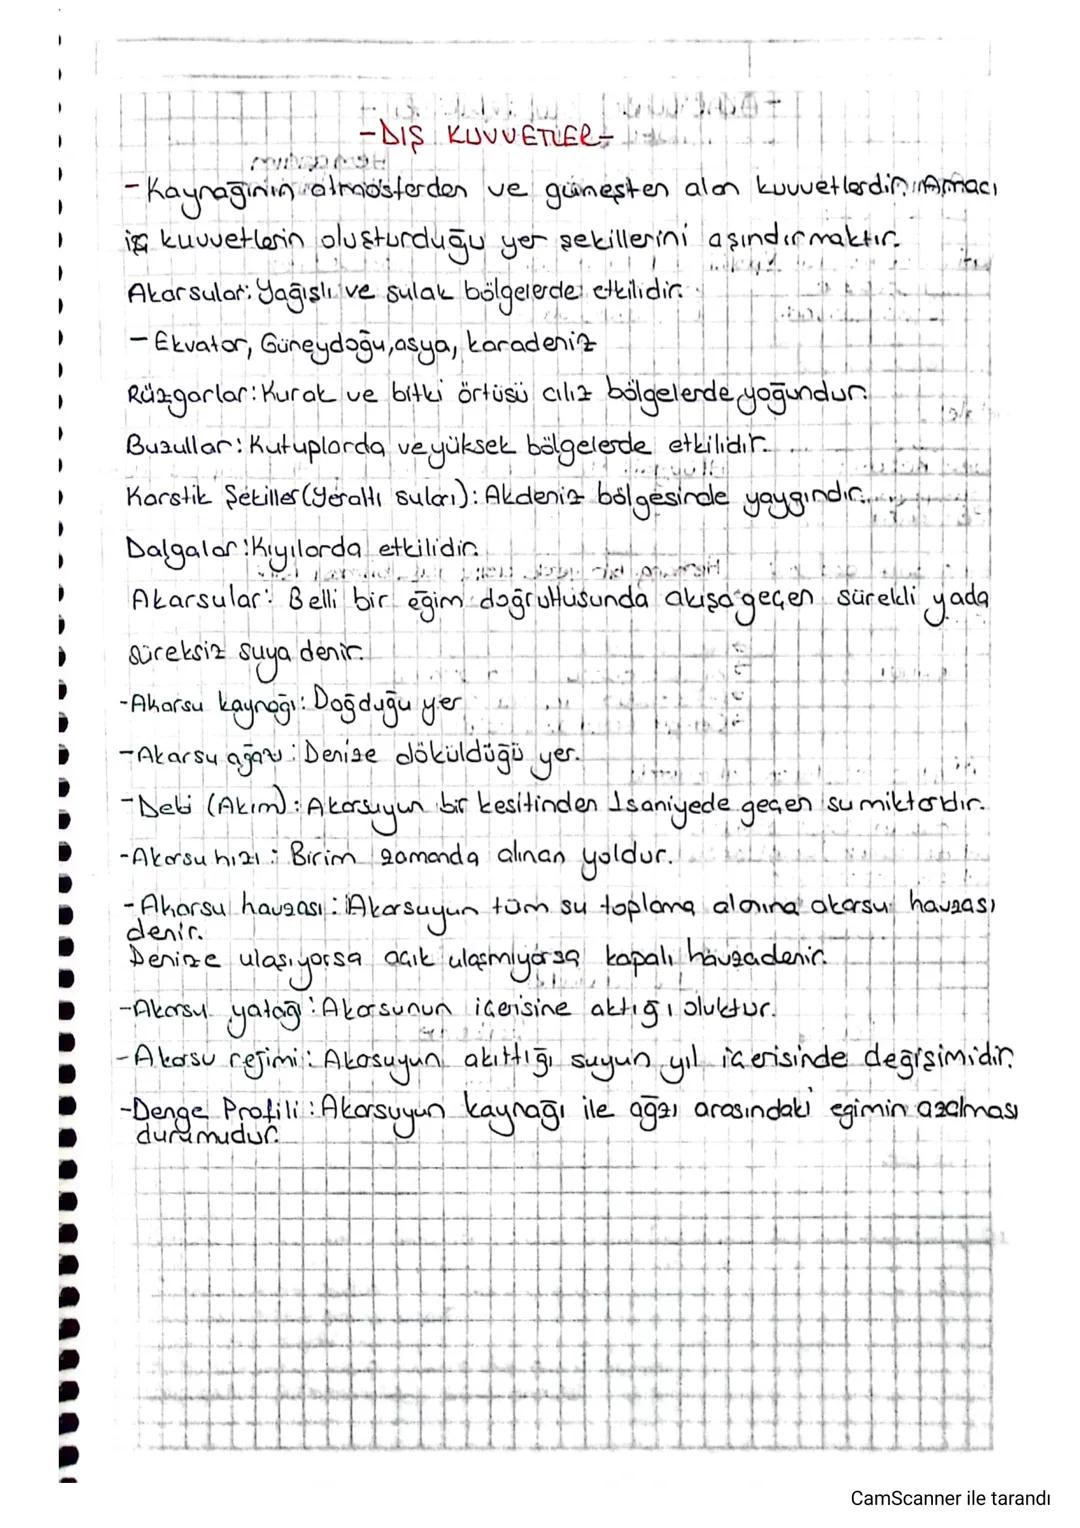 -DIŞ KUVVETLER-
- Kaynağının atmosferden ve güneşten alan kuvvetlerdir. Amacı
iç kuvvetlerin oluşturduğu yer şekillerini aşındırmaktır.
Akarsular: Yağışlı ve sulak bölgelerde etkilidir.
- Ekvator, Güneydoğu,asya, karadeniz
Rüzgarlar: Kurak ve bitki örtüsü cılız bölgelerde yoğundur.
Buzullar: Kutuplarda ve yüksek bölgelerde etkilidir.
Karstik Şekiller (Yeraltı suları): Akdeniz bölgesinde yaygındır.
Dalgalar: Kıyılarda etkilidir.
Akarsular: Belli bir eğim doğrultusunda akışa geçen sürekli yada
süreksiz suya denir.
-Akarsu kaynağı: Doğduğu yer
-Akarsu ağazı: Denize döküldüğü yer.
-Debi (Akım): Akarsuyun bir kesitinden 1 saniyede geçen su miktarıdır.
-Akarsu hızı: Birim zamanda alınan yoldur.
-Akarsu havzası: Akarsuyun tüm su toplama alanına akarsu havzası
denir.
Denize ulaşıyorsa açık ulaşmıyorsa kapalı havzadenir.
-Akarsu yatağı: Akarsunun içerisine aktığı oluktur.
-Akarsu rejimi: Akasuyun akıttığı suyun yıl içerisinde değişimidir.
-Denge Profili: Akarsuyun kaynağı ile ağzı arasındaki eğimin azalması
durumudur.
CamScanner ile tarandı